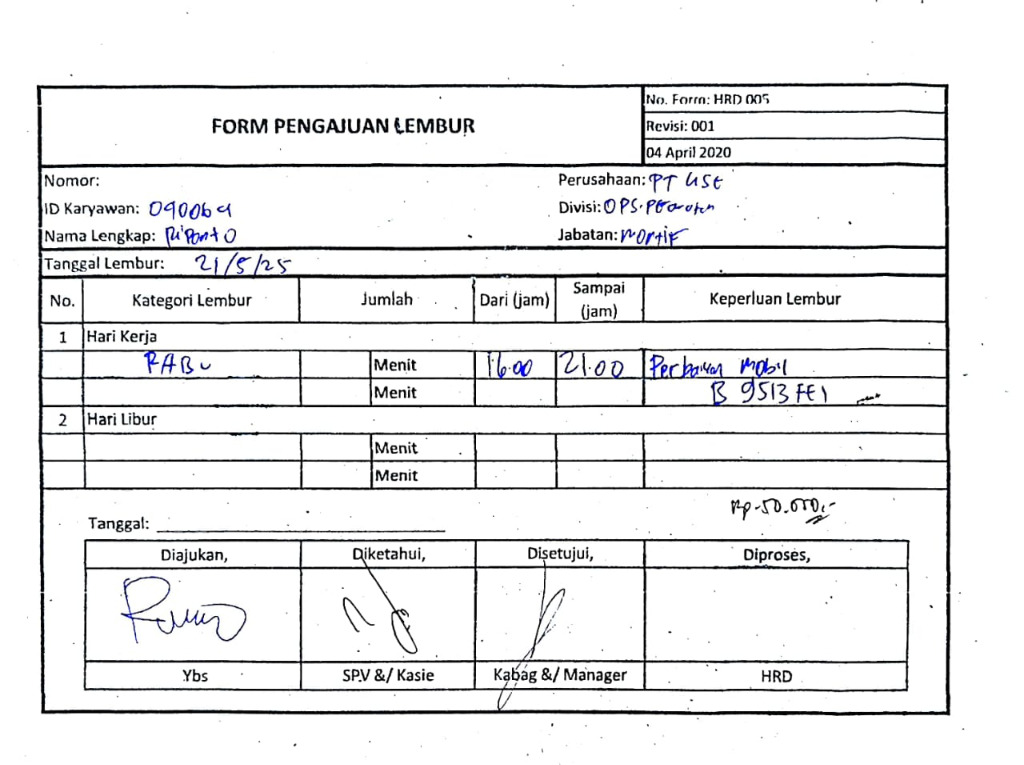 No. Form: HRD 005
FORM PENGAJUAN LEMBUR
Revisi: 001
04 April 2020
Nomor:
Perusahaan: PT USE
ID Karyawan: 090069
Divisi: OPS.
Nama Lengkap: Riponto
Jabatan: montif
Tanggal Lembur: 21/5/25
No. Kategori Lembur Jumlah Dari (jam) Sampai (jam) Keperluan Lembur
1 Hari Kerja
RABU Menit 16.00 21.00 Perbaikan mobil
Menit B 9513 FEI
2 Hari Libur
Menit
Menit
Rp.50.000,-
Tanggal:
Diajukan, Diketahui, Disetujui, Diproses,
Ybs SPV &/ Kasie Kabag &/ Manager HRD